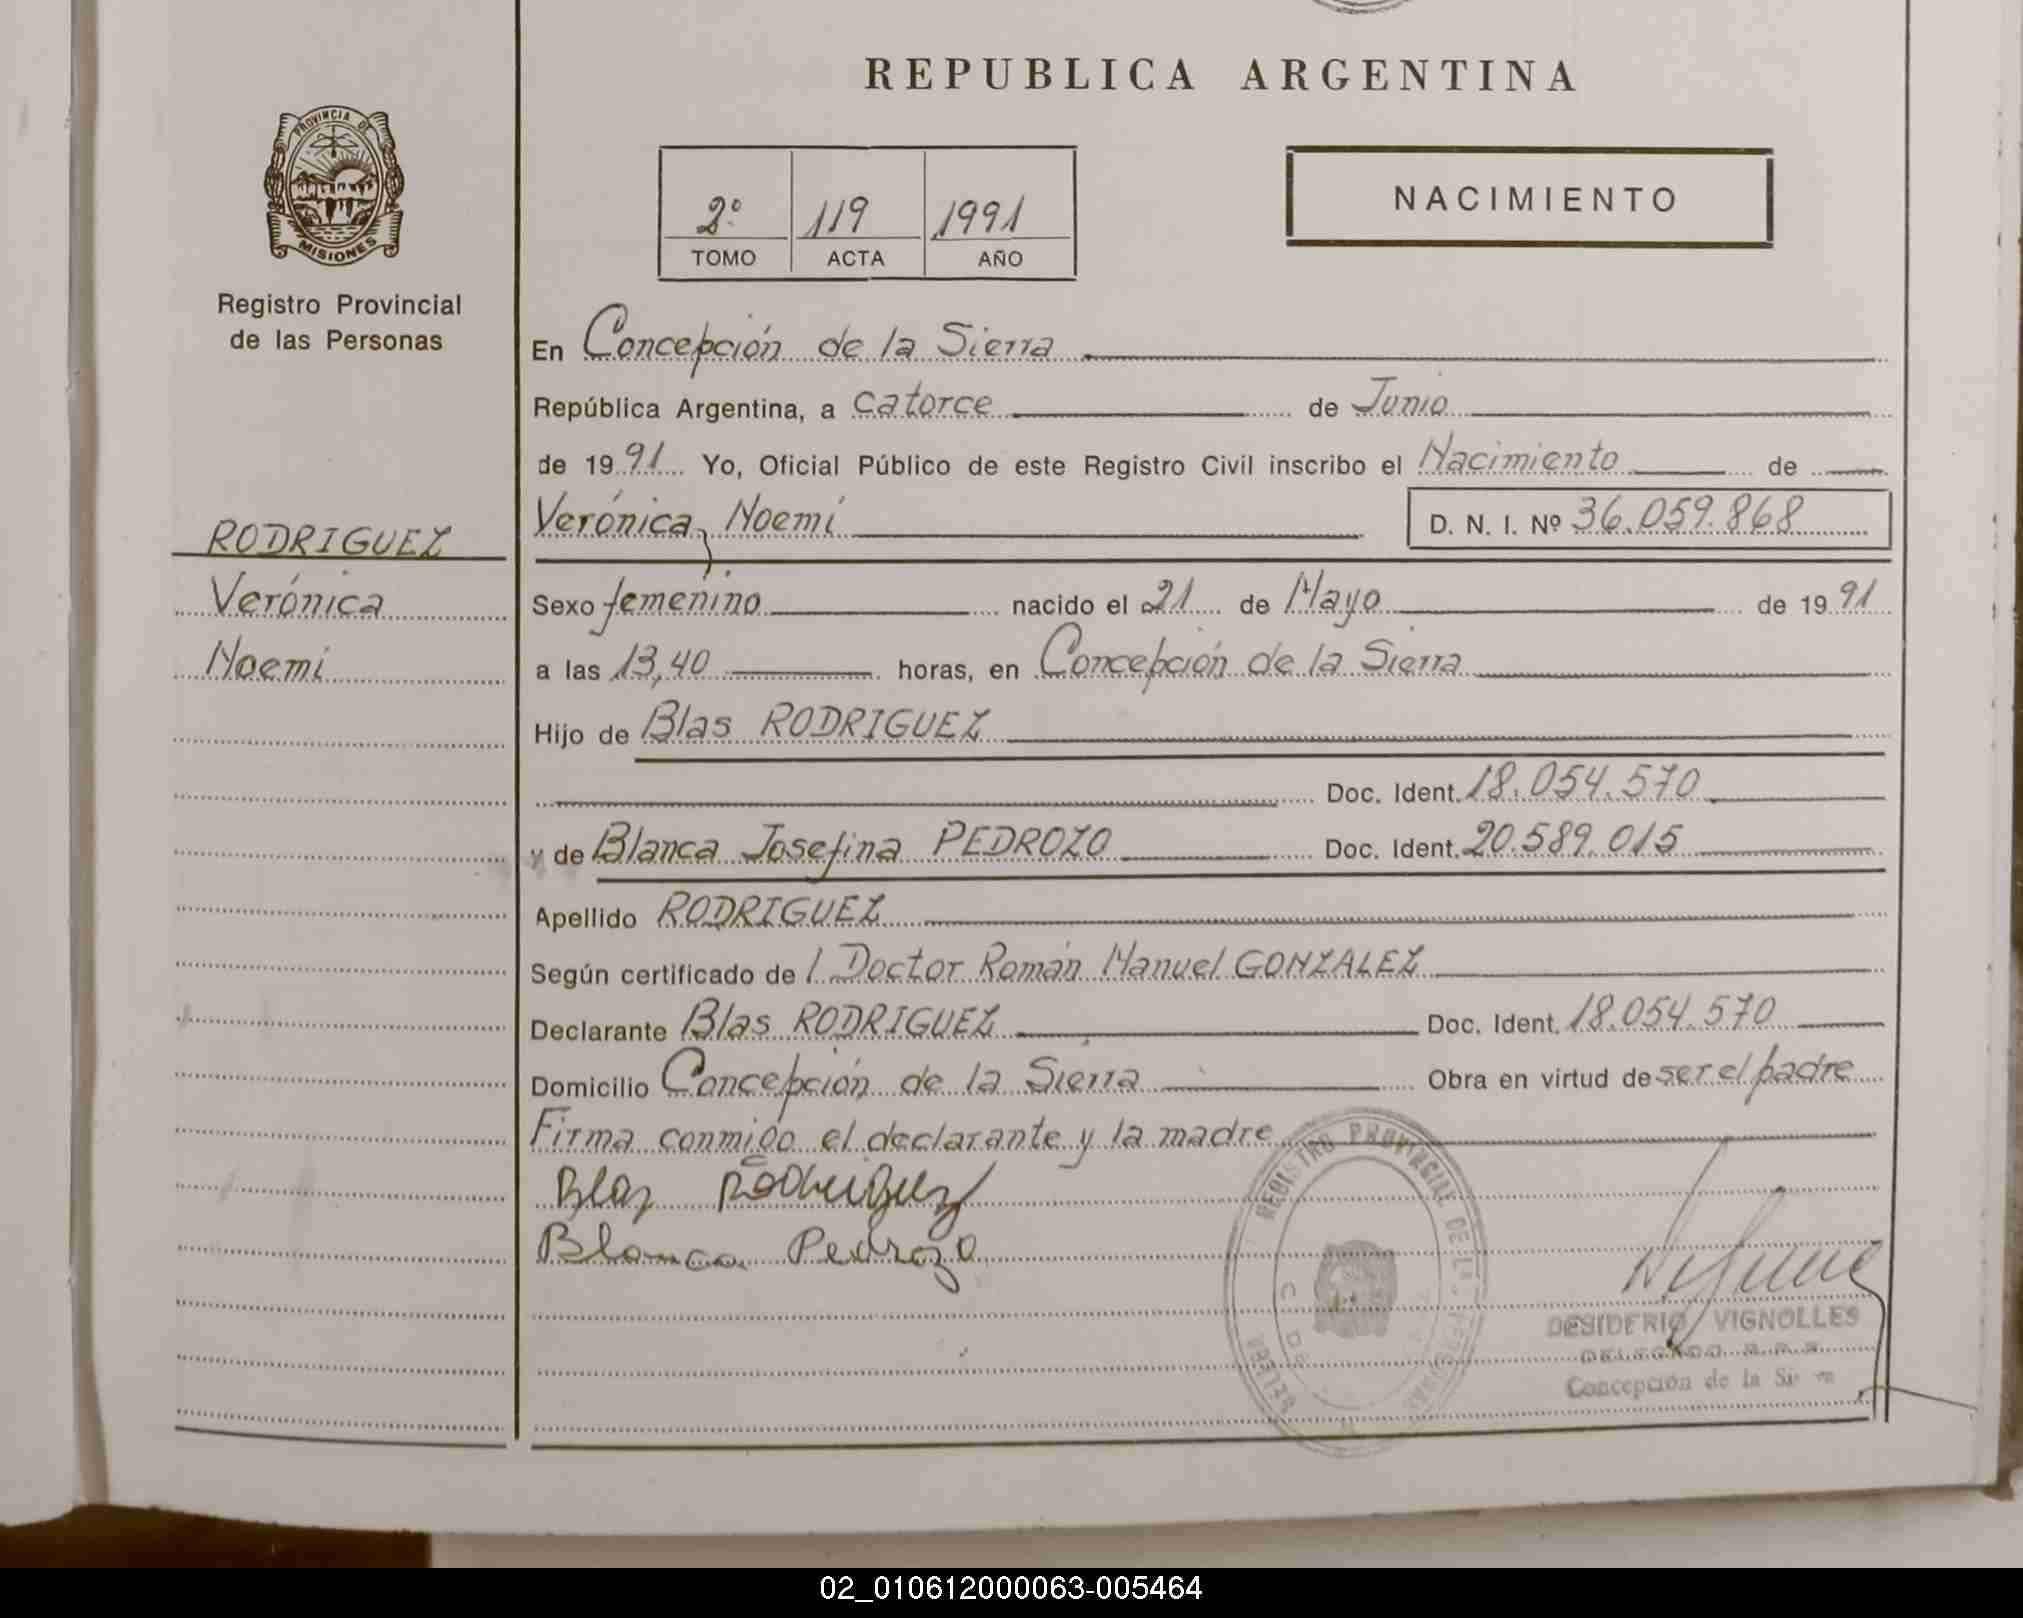 REPUBLICA ARGENTINA
PROVINCIA DE
MISIONES
Registro Provincial
de las Personas
2º 119 1991
TOMO ACTA AÑO
NACIMIENTO
En Concepción de la Sierra
República Argentina, a catorce de Junio
de 1991 Yo, Oficial Público de este Registro Civil inscribo el Nacimiento de
Verónica, Noemí
D. N. I. Nº 36.059.868
RODRIGUEZ
Verónica
Noemí
Sexo femenino nacido el 21 de Mayo de 1991
a las 13,40 horas, en Concepción de la Sierra
Hijo de Blas RODRIGUEZ
Doc. Ident. 18.054.570
y de Blanca Josefina PEDROZO Doc. Ident. 20.589.015
Apellido RODRIGUEZ
Según certificado de l Doctor Román Manuel GONZALEZ
Declarante Blas RODRIGUEZ Doc. Ident. 18.054.570
Domicilio Concepción de la Sierra Obra en virtud de ser el padre
Firma conmigo el declarante y la madre
Blas Rodriguez
Blanca Pedrozo
REGISTRO PROVINCIAL DE L
DESIDERIO VIGNOLLES
DELEGADO R. P. P.
Concepción de la
02_010612000063-005464